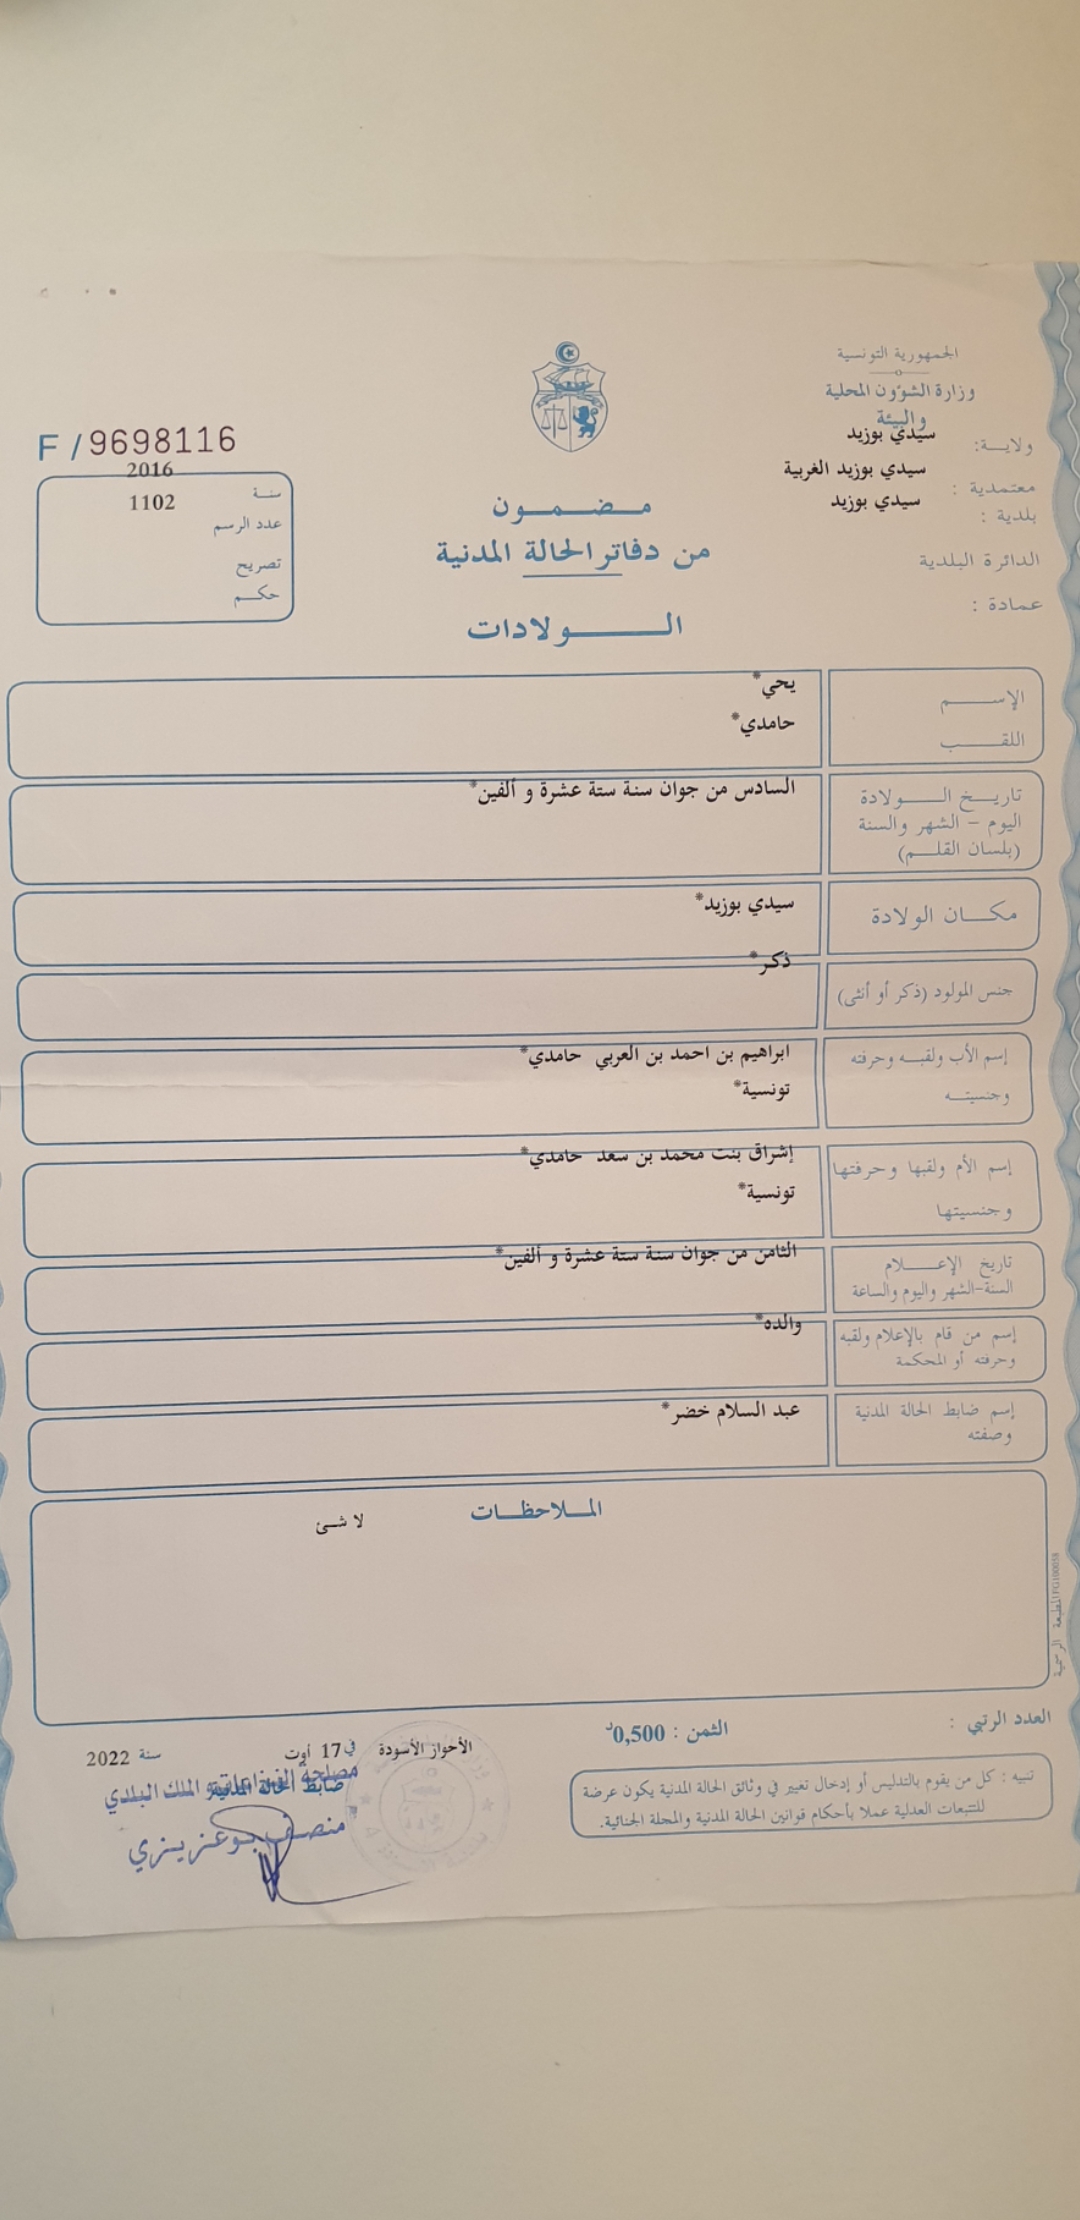 الجمهورية التونسية
وزارة الشؤون المحلية
والبيئة
ولايـــة: سيدي بوزيد
معتمدية : سيدي بوزيد الغربية
بلدية : سيدي بوزيد
الدائرة البلدية
عمادة :
F / 9698116
سنـة 2016
عدد الرسم 1102
تصريح
حكـم
مـــضـــمـــون
من دفاتر الحالة المدنية
الـــــولادات
الإســــم يحي*
اللقــــب حامدي*
تاريـــخ الـــــولادة السادس من جوان سنة ستة عشرة و ألفين*
اليوم – الشهر والسنة
(بلسان القلـــم)
مكـــان الولادة سيدي بوزيد*
جنس المولود (ذكر أو أنثى) ذكر*
إسم الأب ولقبـــه وحرفته ابراهيم بن احمد بن العربي حامدي*
وجنسيتـــه تونسية*
إسم الأم ولقبها وحرفتها إشراق بنت محمد بن سعد حامدي*
وجنسيتها تونسية*
تاريخ الإعـــــلام الثامن من جوان سنة ستة عشرة و ألفين*
السنة-الشهر واليوم والساعة
إسم من قام بالإعلام ولقبه والده*
وحرفته أو المحكمة
إسم ضابط الحالة المدنية عبد السلام خضر*
وصفته
المــلاحظـــات
لا شـئ
المطبعة الرسمية
العدد الرتبي :
الثمن : 0,500د
الأحواز الأسودة في 17 أوت سنة 2022
ضابط الحالة المدنية
مصلحة النزاعات و الملك البلدي
منصف بوعزيزي
تنبيه : كل من يقوم بالتدليس أو إدخال تغيير في وثائق الحالة المدنية يكون عرضة
للتتبعات العدلية عملا بأحكام قوانين الحالة المدنية والمجلة الجنائية.